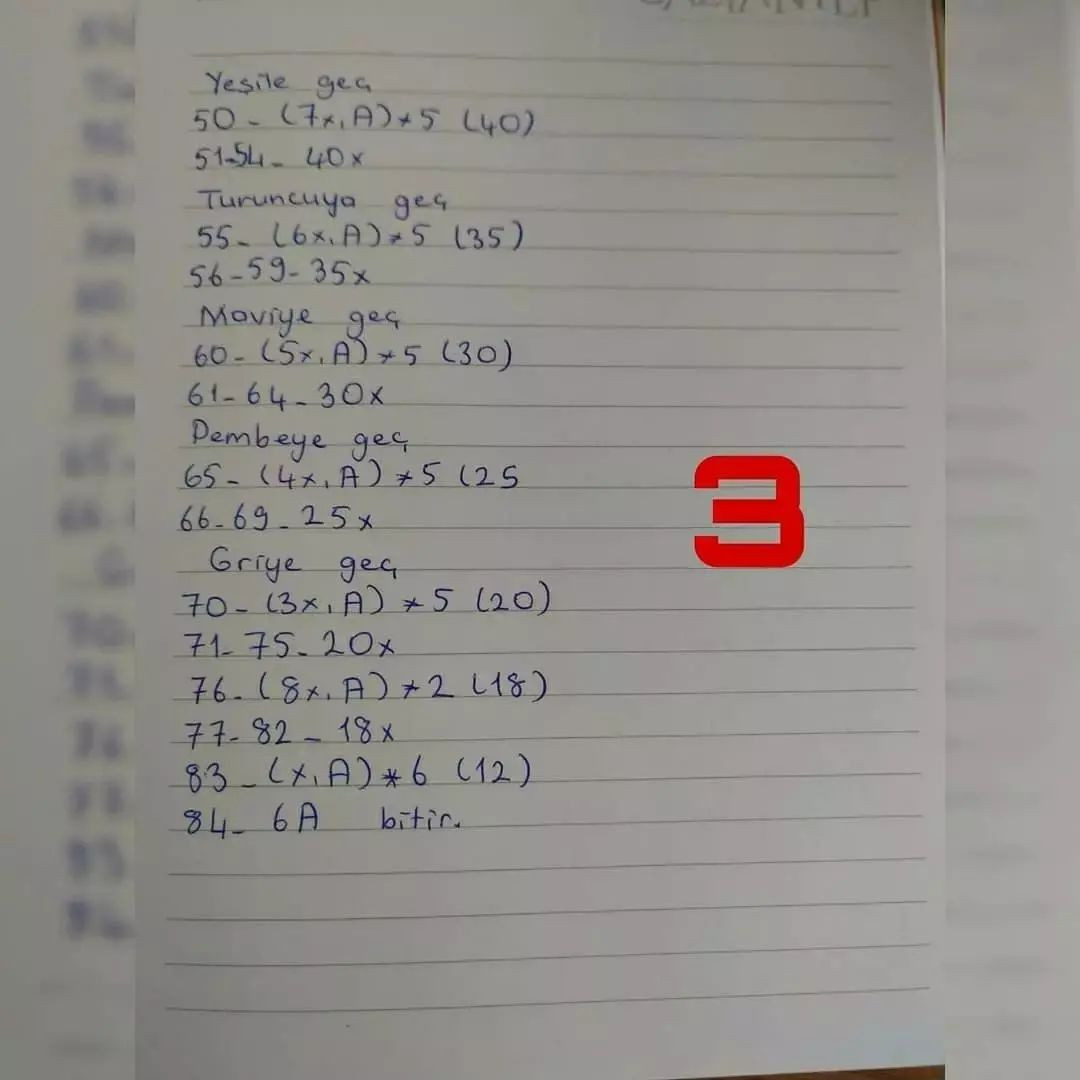 Yeşile geç
50 - (7x, A)*5 (40)
51-54 - 40x
Turuncuya geç
55 - (6x, A)*5 (35)
56-59 - 35x
Maviye geç
60 - (5x, A)*5 (30)
61-64 - 30x
Pembeye geç
65 - (4x, A)*5 (25
66-69 - 25x
Griye geç
70 - (3x, A)*5 (20)
71-75 - 20x
76 - (8x, A)*2 (18)
77-82 - 18x
83 - (x, A)*6 (12)
84 - 6A bitir.
3